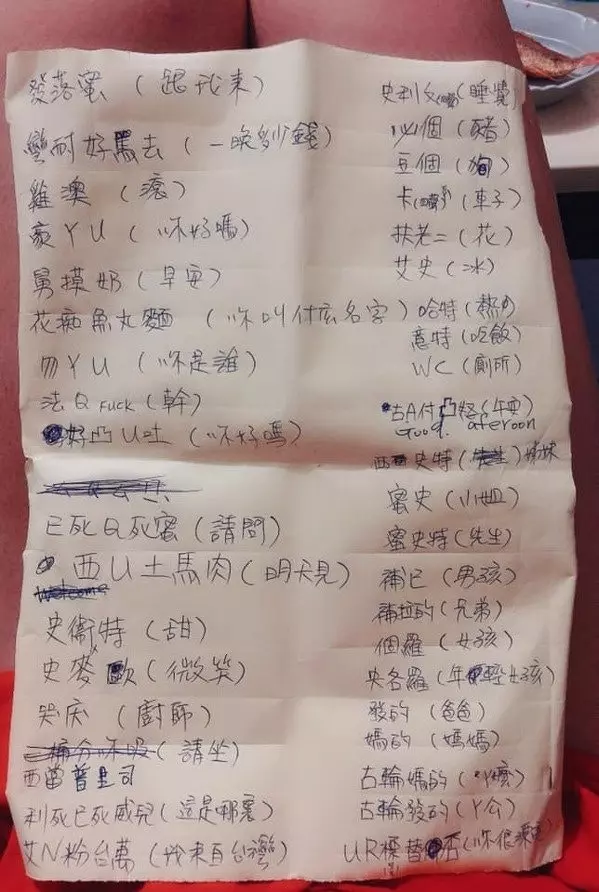 發落蜜（跟我來）
蠻耐好馬去（一晚多少錢）
雞澳（滾）
豪ㄚU（你好嗎）
舅摸奶（早安）
花痴魚丸麵（你叫什庅名字）
吻ㄚU（你是誰）
法Q FUCK（幹）
好凸U吐（你好嗎）
已死Q死蜜（請問）
西U土馬肉（明天見）
Welcome
史衛特（甜）
史麥歐（微笑）
哭庆（廚師）
（請坐）
西當普里司
利死已死威兒（這是哪裏）
艾N粉台萬（我來自台灣）
史利（睡覺）
個（豬）
豆個（狗）
卡（車子）
扶老二（花）
艾史（冰）
哈特（熱的）
意特（吃飯）
WC（廁所）
古A付凸怒（午安）
Good. aferoon
西史特（）姊妹
蜜史（小姐）
蜜史特（先生）
補已（男孩）
補拉的（兄弟）
個羅（女孩）
央各羅（年輕女孩）
發的（爸爸）
媽的（媽媽）
古輪媽的（ㄚ嬤）
古輪發的（ㄚ公）
UR標替否（你很漂亮）